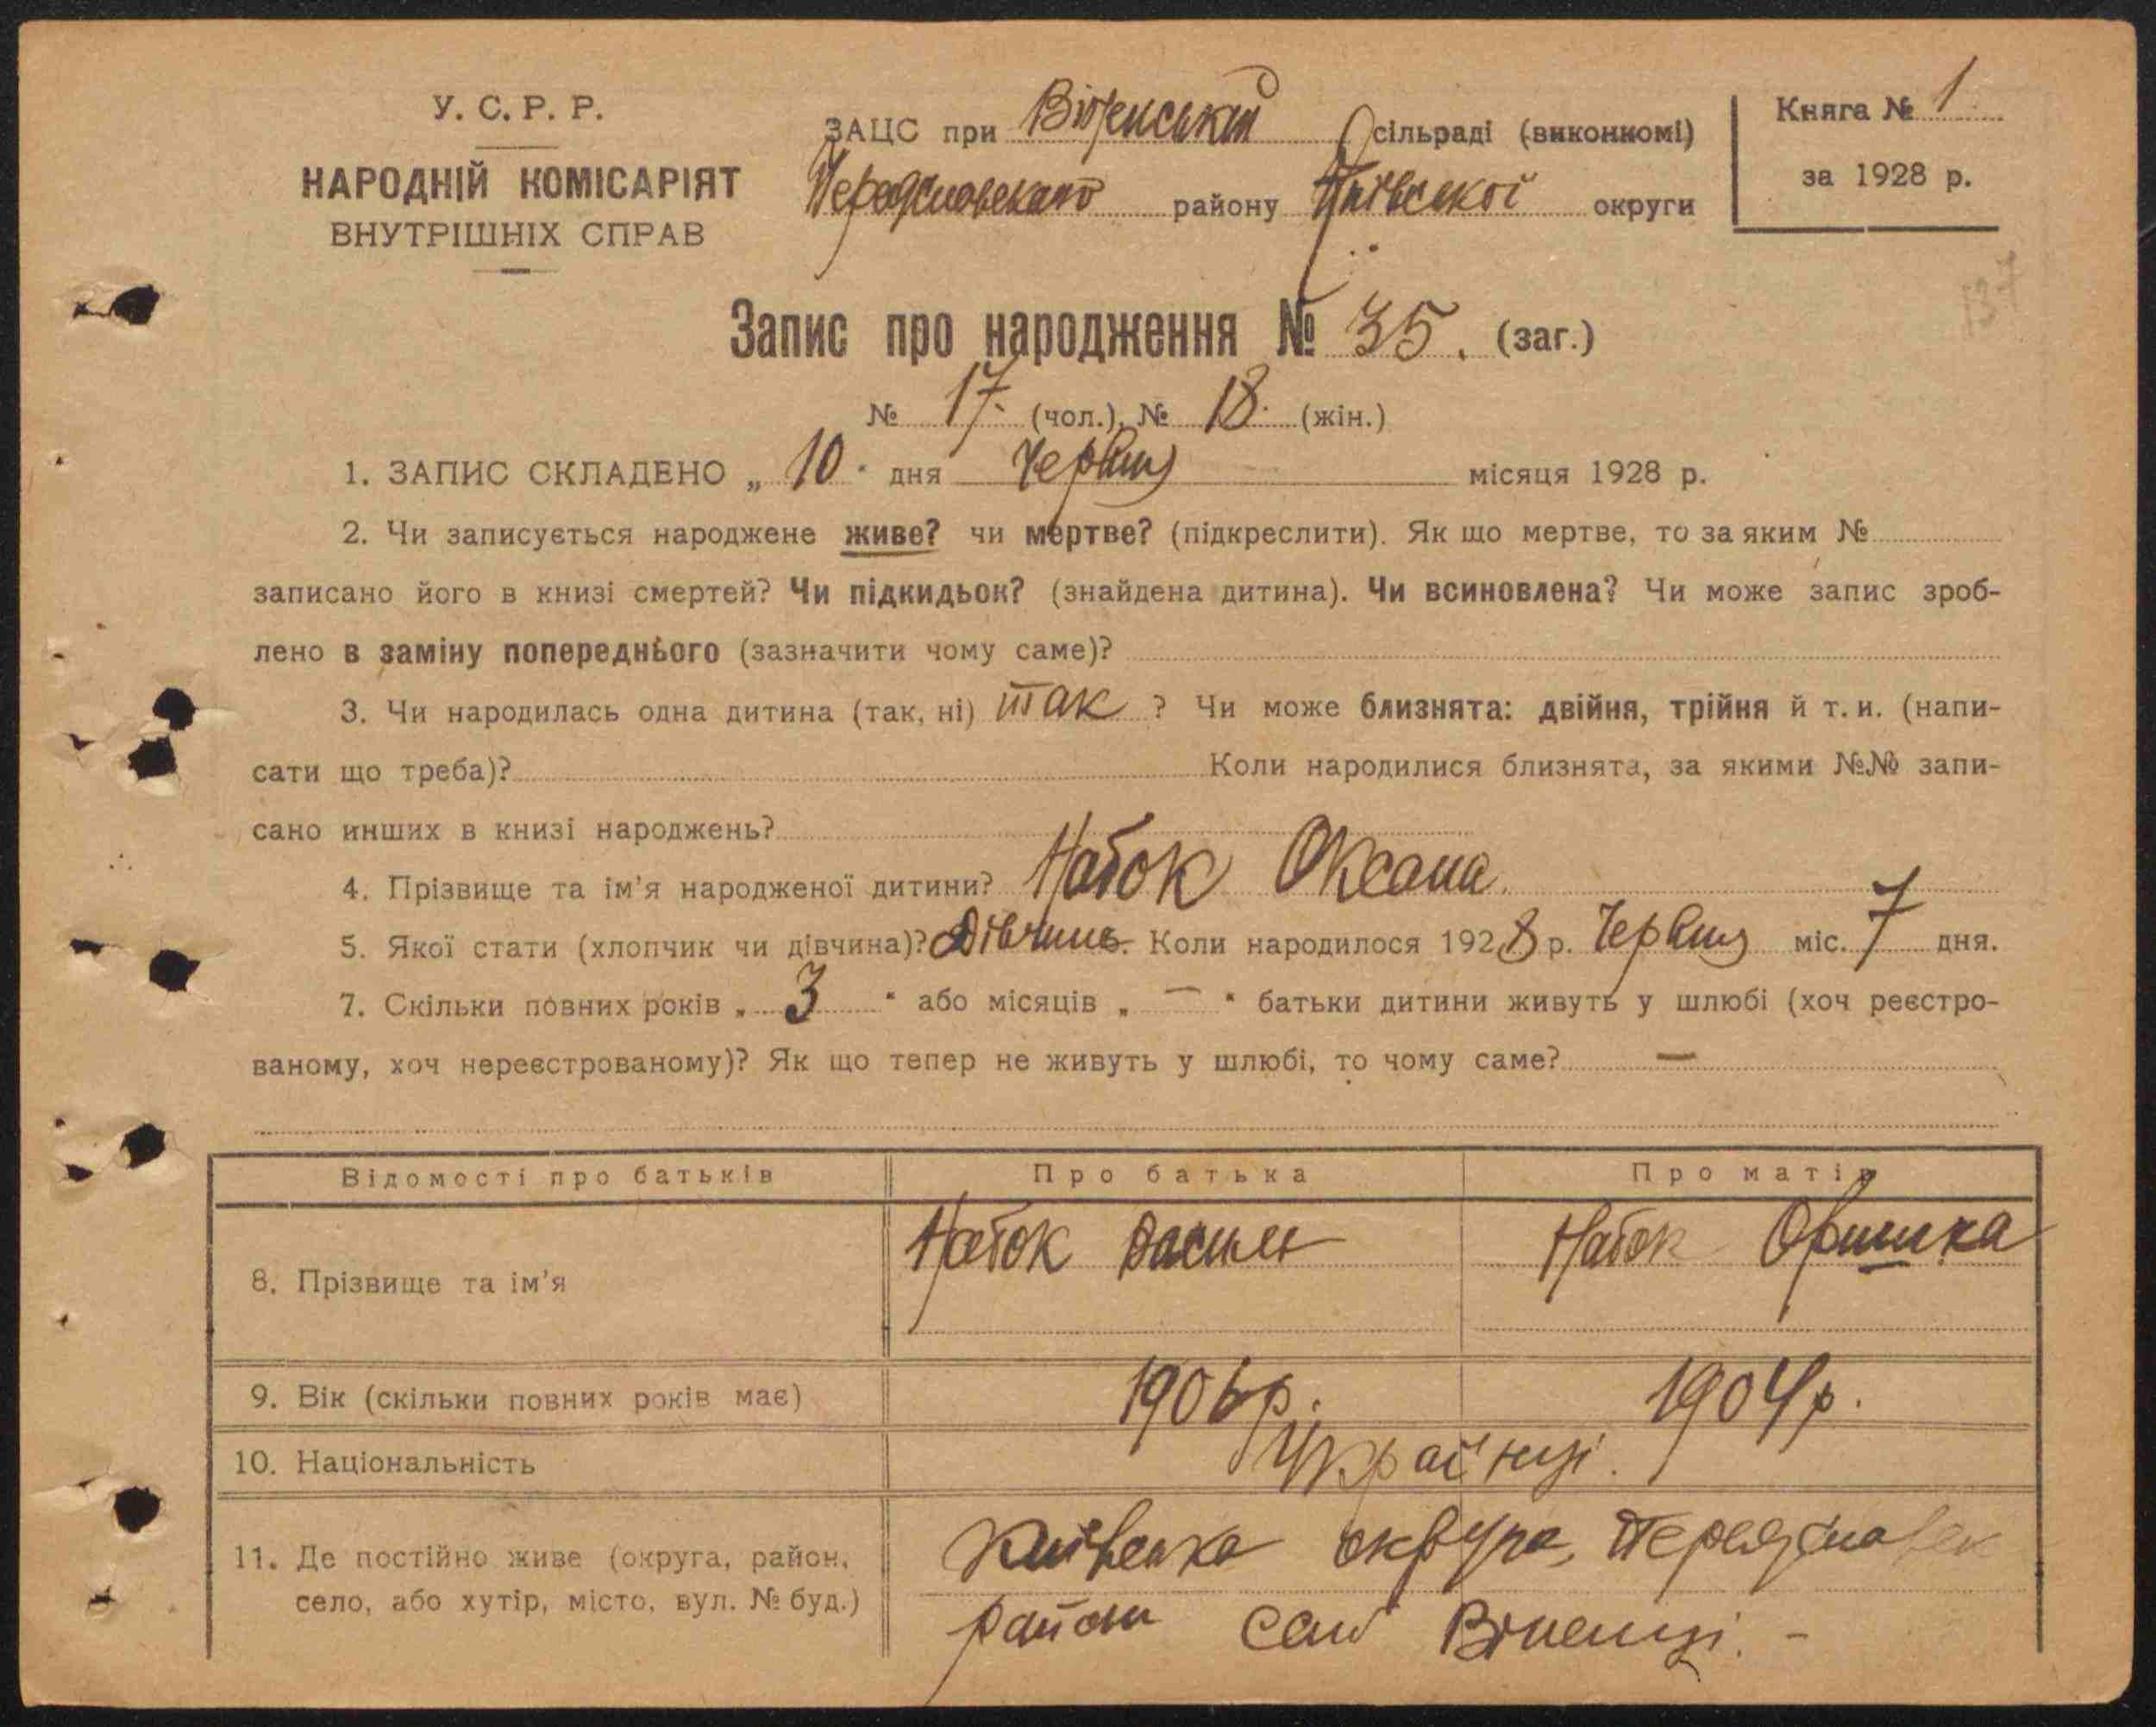 У. С. Р. Р.
НАРОДНІЙ КОМІСАРІЯТ
ВНУТРІШНІХ СПРАВ
ЗАЦС при сільраді (виконкомі)
району округи
Книга № 1
за 1928 р.
137
Запис про народження № 35. (заг.)
№ 17. (чол.), № 18. (жін.)
1. ЗАПИС СКЛАДЕНО „ 10 " дня Червня місяця 1928 р.
2. Чи записується народжене живе? чи мертве? (підкреслити). Як що мертве, то за яким №
записано його в книзі смертей? Чи підкидьок? (знайдена дитина). Чи всиновлена? Чи може запис зроб-
лено в заміну попереднього (зазначити чому саме)?
3. Чи народилась одна дитина (так, ні) так ? Чи може близнята: двійня, трійня й т. и. (напи-
сати що треба)? Коли народилися близнята, за якими №№ запи-
сано инших в книзі народжень?
4. Прізвище та ім'я народженої дитини? Наток Оксана
5. Якої стати (хлопчик чи дівчина)? Коли народилося 1928 р. Червня міс. 7 дня.
7. Скільки повних років „ 3 " або місяців „ — " батьки дитини живуть у шлюбі (хоч реєстро-
ваному, хоч нереєстрованому)? Як що тепер не живуть у шлюбі, то чому саме? —
Відомості про батьків Про батька Про матір
8. Прізвище та ім'я Наток Василь Наток Оришка
9. Вік (скільки повних років має) 1906р. 1904р.
10. Національність Українці.
11. Де постійно живе (округа, район,
село, або хутір, місто, вул. № буд.)
Київська округа,
район село